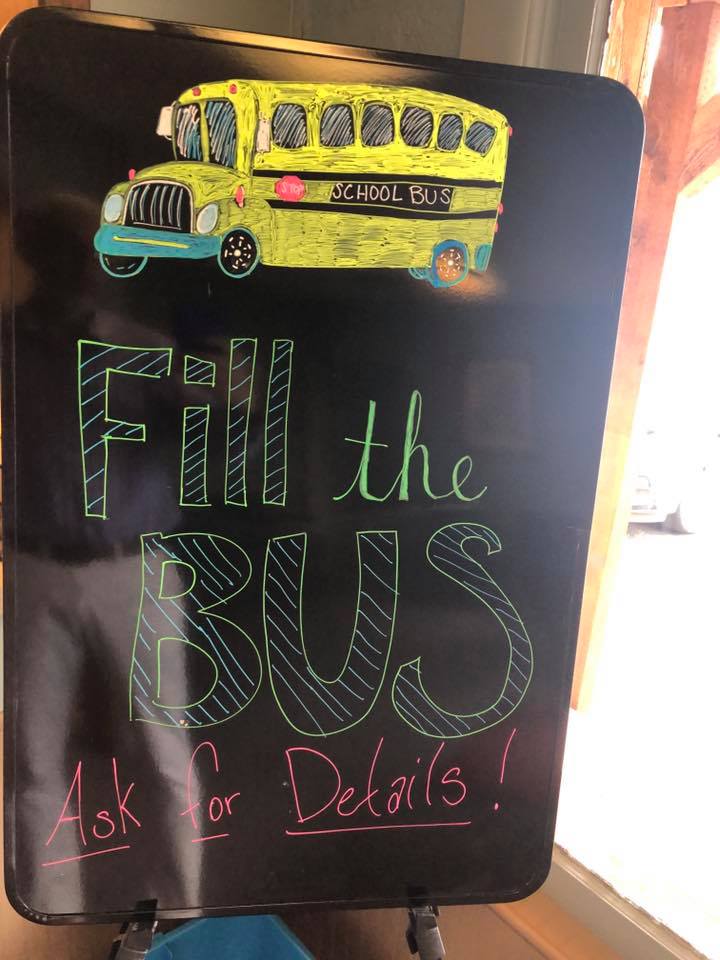 STOP
SCHOOL BUS
Fill the
BUS
Ask for Details!